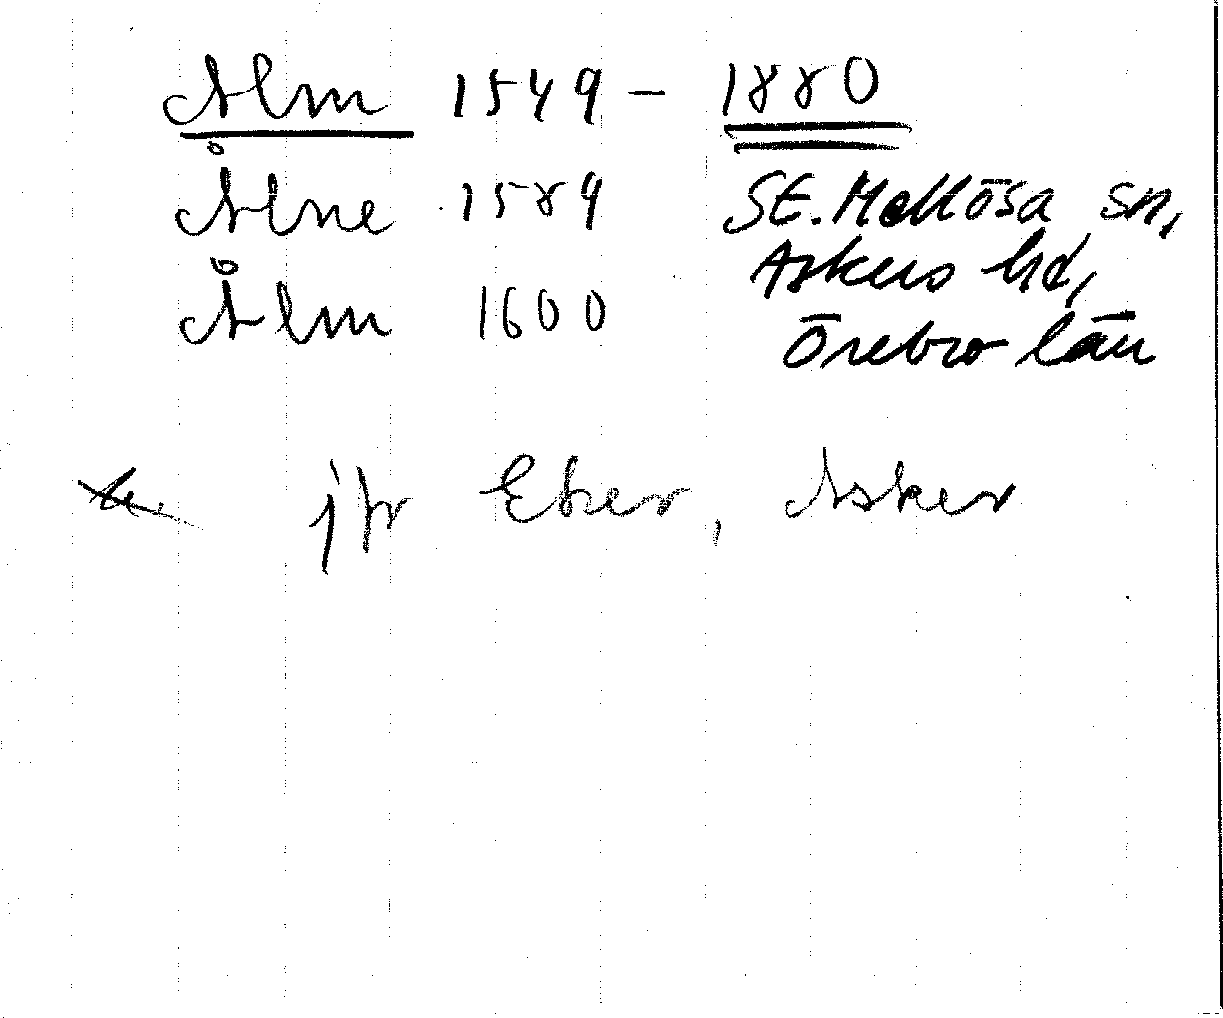 Alm 1549 - 1880
Ålne 1589 St. Mellösa sn,
Askers hd,
Ålm 1600
Örebro län
jfr Eker, Asker